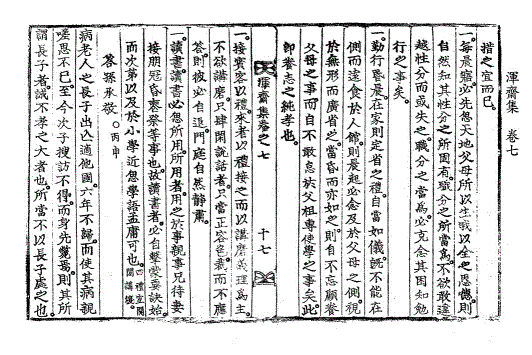 渾齋集 卷七
措之宜而已
一每晨寤必先思天地父母所以生我以全之恩德則
自然知其性分之所固有職分之所當爲不欲敢違
越性分而或失之職分之當爲必克念其因知勉
行之事矣
一勤行晨昏在家則定省之禮自當如儀旣不能在
側而遠食於人館則晨起必念及於父母之側視
於無形而廣省之當昏而亦如之則自不忘顧養
父母之事而自不敢怠於父祖專使學之事矣此
卽養志之純孝也
渾齋集卷之七 十七
一接賓客以禮來者以禮接之而以講磨義理爲主
不欲講磨只肆閑說話者只當正容色莊而不應
答則彼必自退門庭自然靜肅
一讀書讀書必思所用所用者用之於事親事兄待妻
接朋冠昏喪祭等事也故讀書者必自擊蒙要訣始
而次第以及於小學近思學語孟庸可也 四禮宜閒
答孫承敬 丙申
病老人之長子出入遠他國六年不歸而使其病親
嗟思不已至今次子搜訪不得而身先斃焉則其所
謂長子者誠不孝之大者也所當不以長子處之也